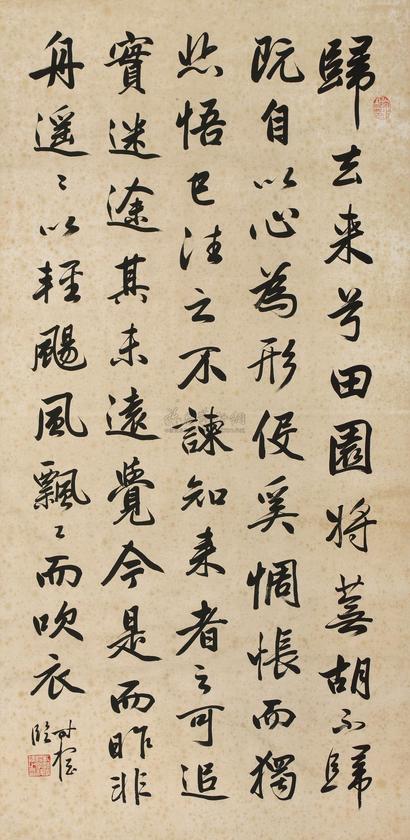 歸去来兮田園将蕪胡不歸
既自以心為形役奚惆悵而獨
悲悟已往之不諫知来者之可追
實迷途其未遠覺今是而昨非
舟遥〻以輕颺風飄〻而吹衣
臨